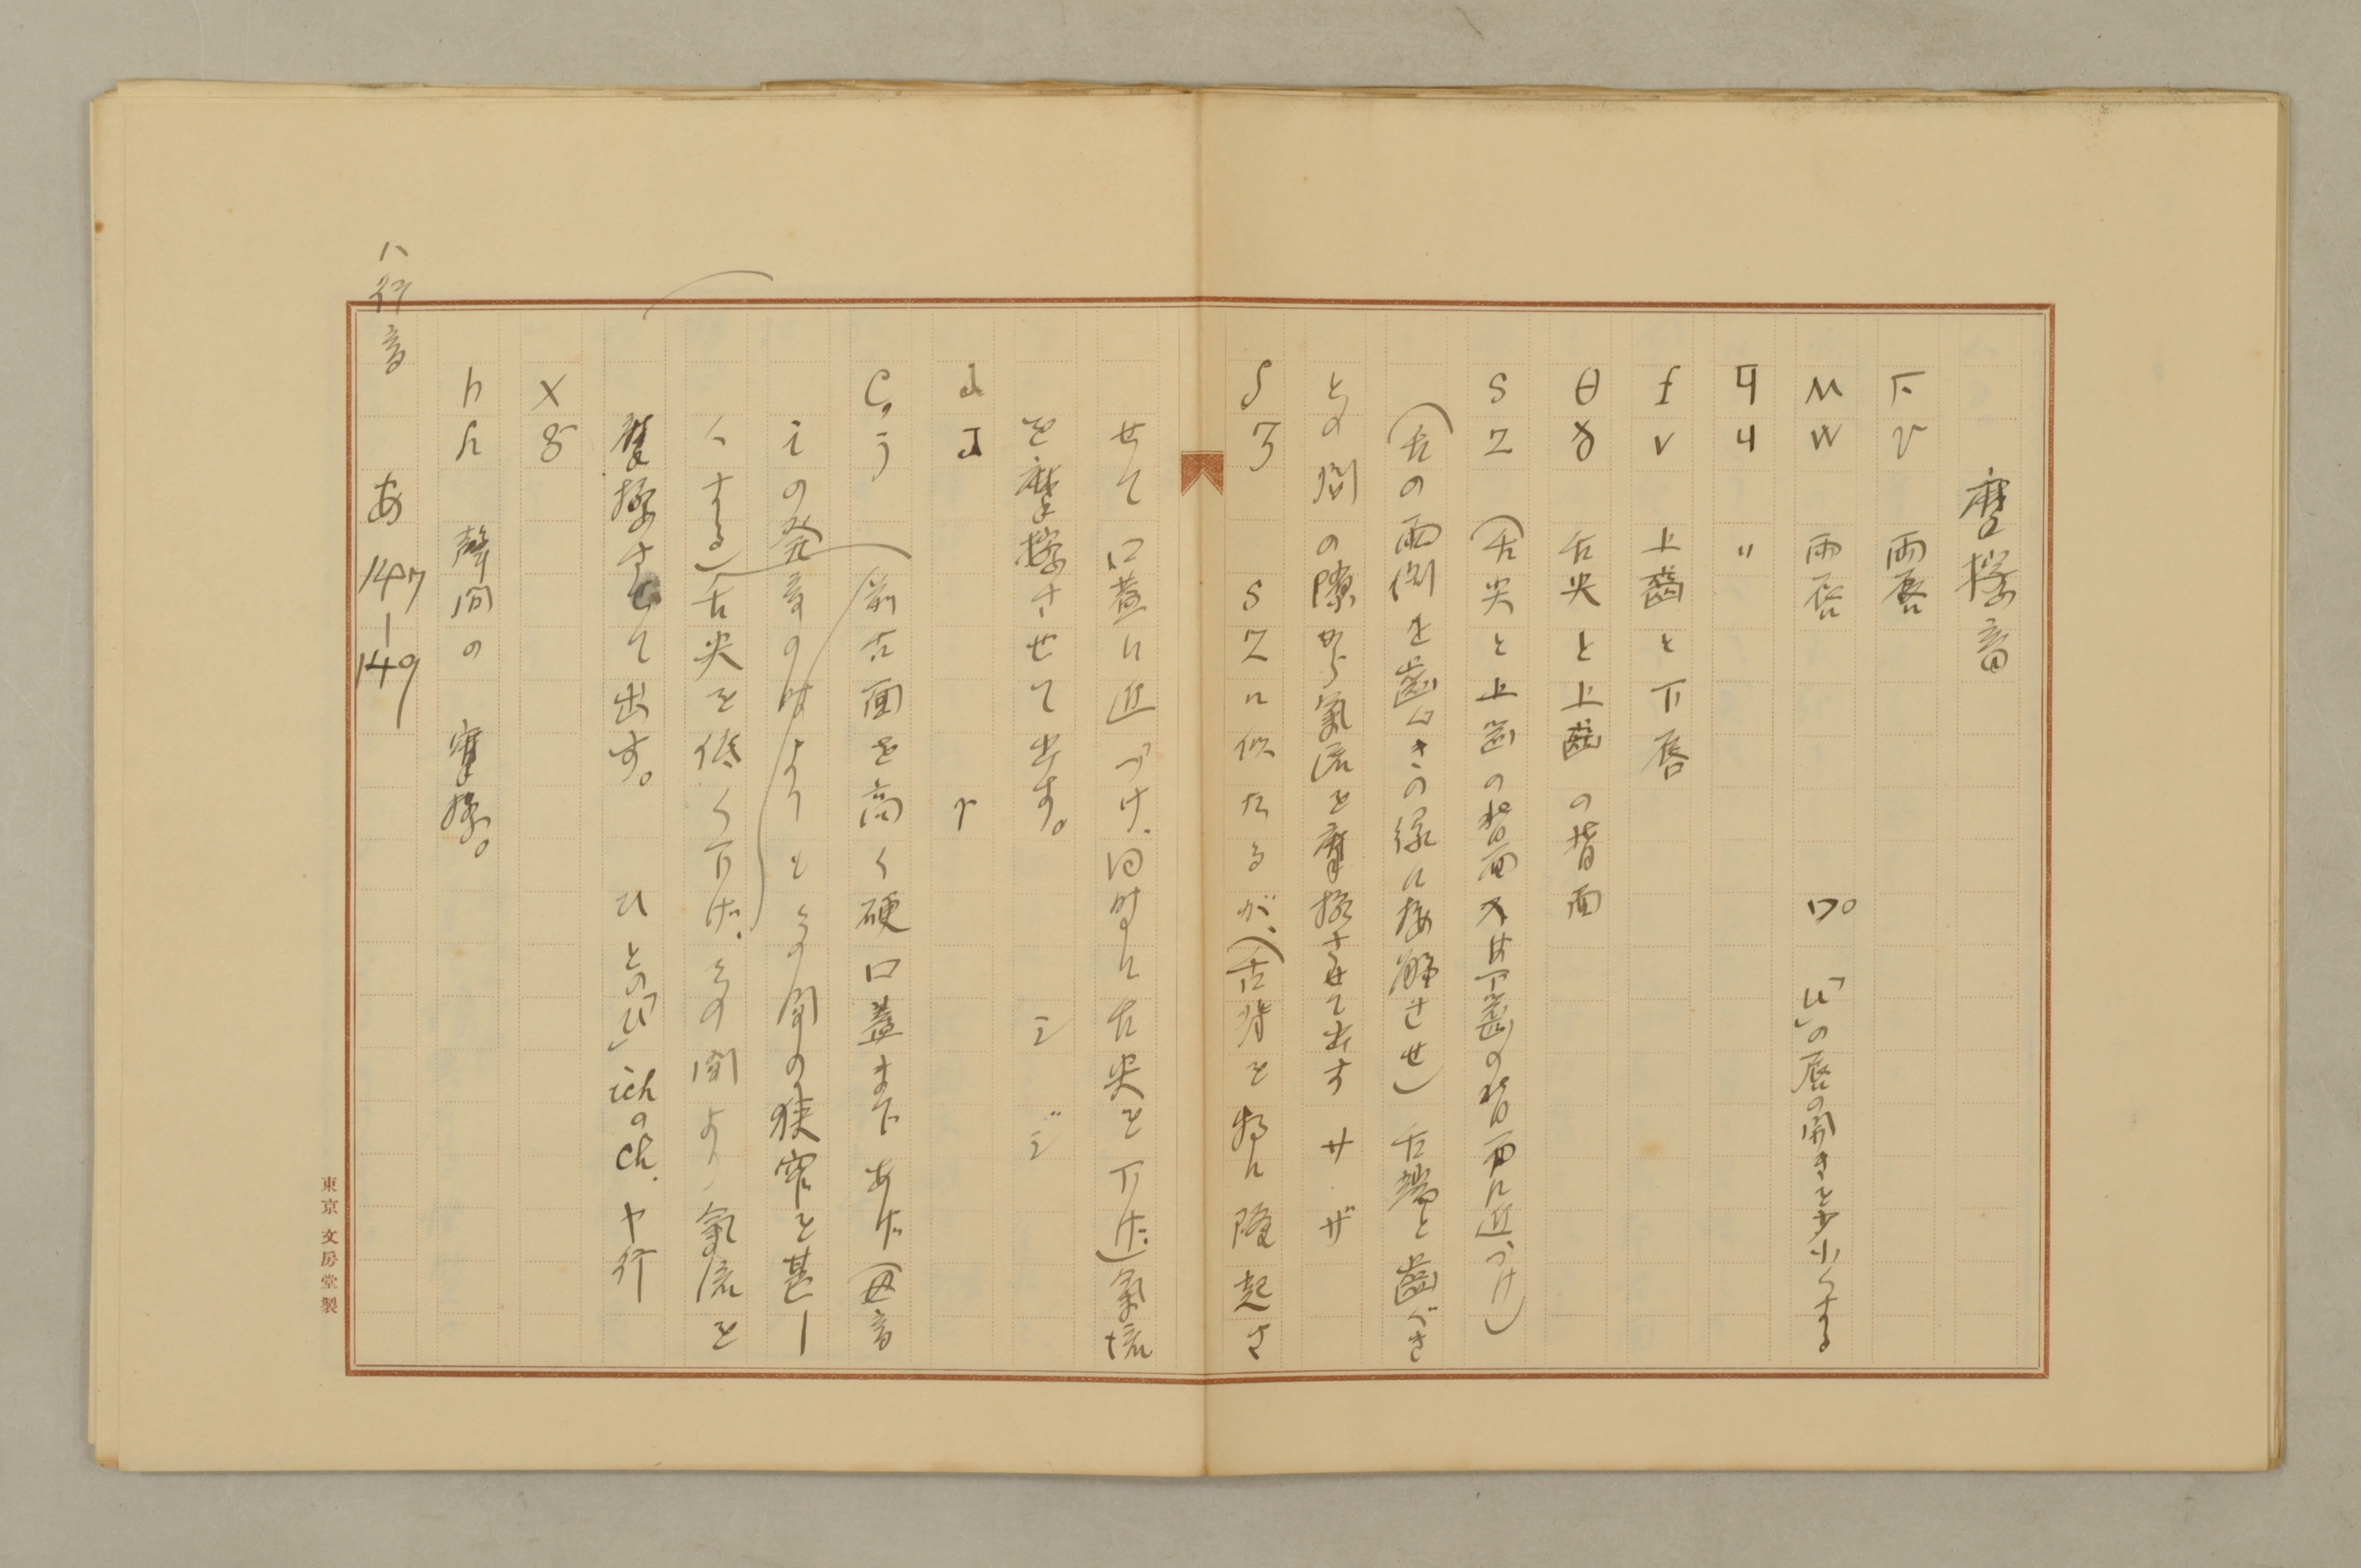 摩擦音
F υ 両唇
M W 両唇 ワ。「ひ」の唇の開きを少小くする
ꟻ ч 〃
f v 上歯と下唇
θ ð 舌尖と上歯の背面
s z (舌尖と上歯の背面又は下歯の背面に近づけ)
(舌の両側を歯ぐきの縁に接触させ)舌端と歯ぐき
との間の隙から氣流を摩擦させて出す サ ザ
ʃ ʒ s zに似たるが、(舌背を特に隆起さ
せて口蓋に近づけ、同時に舌尖を下げ)氣流
を摩擦させて出す。 シ ジ
r
ç (前舌面を高く硬口蓋まであげ(母音
iの発音の時よりもその間の狭窄を甚し
くする)舌尖を低く下げ、その間より氣流を
摩擦させて出す。 ひとの「ひ」 ichのch. ヤ行
x
h ɦ 聲門の摩擦。
ハ行音 あ 147—149
東京 文房堂製